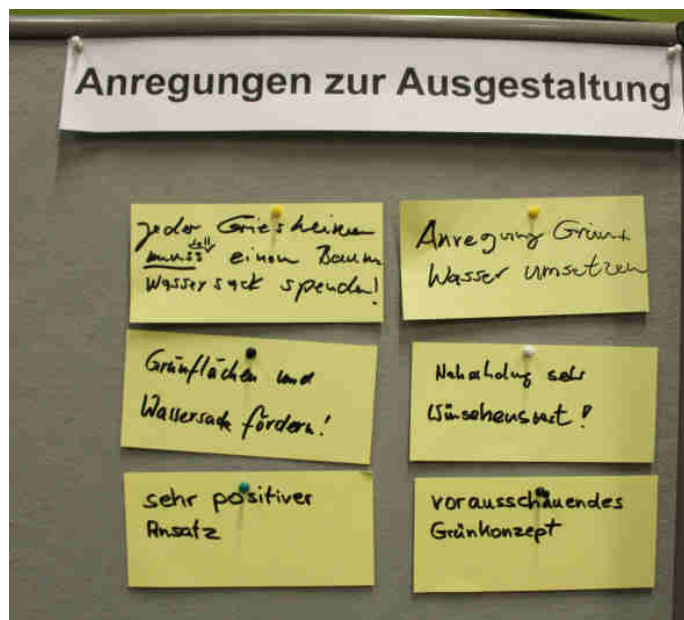 Anregungen zur Ausgestaltung
jeder Griesheimer
muss soll einen Baum
Wassersack spenden!
Anregung Grün +
Wasser umsetzen
Grünflächen und
Wassersack fördern!
Naherholung sehr
Wünschenswert!
sehr positiver
Ansatz
vorausschauendes
Grünkonzept